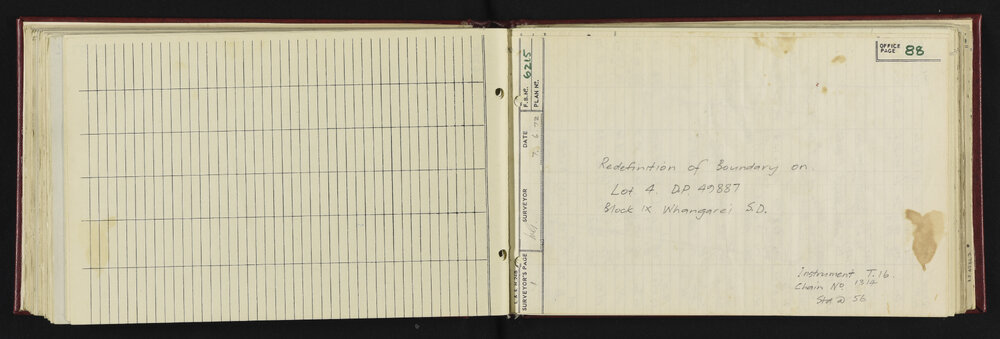 OFFICE PAGE 88
F.B. No. 6215
PLAN No.
DATE 7. 6. 72
SURVEYOR
SURVEYOR'S PAGE 1
Redefinition of Boundary on
Lot 4 DP 49887
Block IX Whangarei S.D.
instrument T.16.
Chain No 1314
Std @ 56